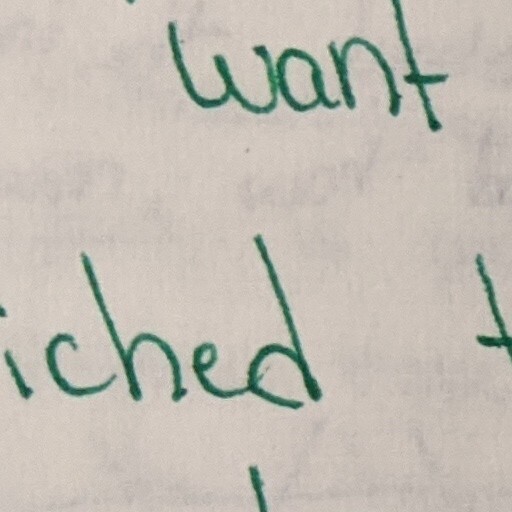 want
iched t